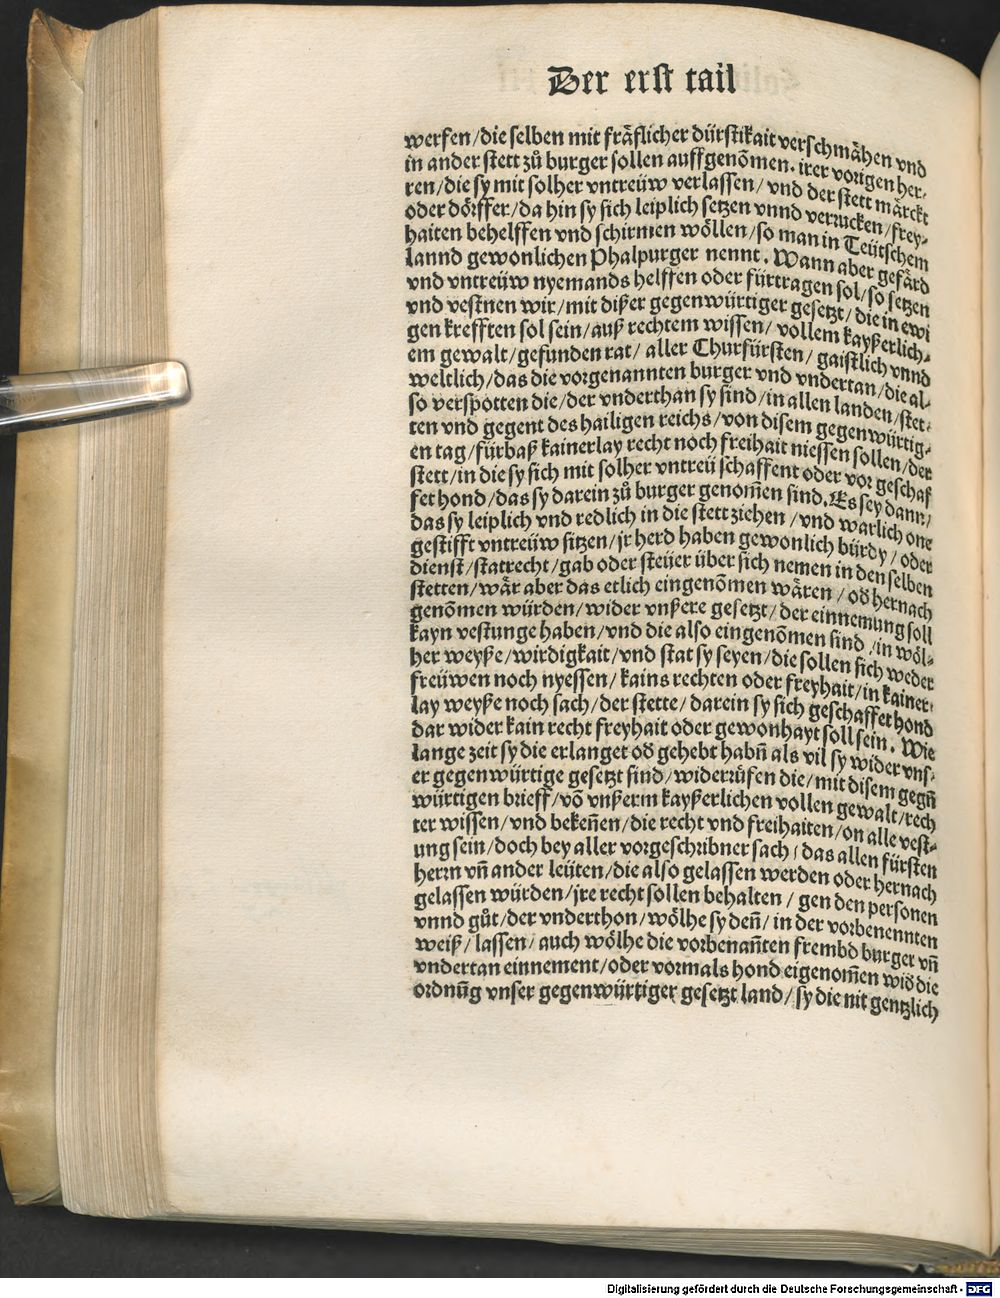 Der erst tail
werfen/die selben mit fräflicher dürstikait verschmähen vnd
in ander stett zů burger sollen auffgenõmen. irer vorigen her-
ren/die sy mit solher vntreüw verlassen/ vnd der stett märckt
oder dörffer/da hin sy sich leiplich setzen vnnd verrucken/frey-
haiten behelffen vnd schirmen wöllen/so man in Teütschem
lannd gewonlichen Phalpurger nennt. Wann aber gefärd
vnd vntreüw nyemands helffen oder fürtragen sol/so setzen
vnd vestnen wir/mit dißer gegenwürtiger gesetzt/die in ewi
gen krefften sol sein/auß rechtem wissen/ vollem kayßerlich-
em gewalt/gefunden rat/ aller Churfürsten/ gaistlich vnnd
weltlich/das die vorgenannten burger vnd vndertan/die al-
so verspotten die/der vnderthan sy sind/in allen landen/stet-
ten vnd gegent des hailigen reichs/von disem gegenwürtig-
en tag/fürbaß kainerlay recht noch freihait niessen sollen/der
stett/in die sy sich mit solher vntreü schaffent oder vor geschaf
fet hond/das sy darein zů burger genom̃en sind. Es sey dann/
das sy leiplich vnd redlich in die stett ziehen/vnd warlich one
gestifft vntreüw sitzen/jr herd haben gewonlich bürdy/ oder
dienst/statrecht/gab oder steüer über sich nemen in den selben
stetten/wär aber das etlich eingenõmen wären/od hernach
genõmen würden/wider vnßere gesetzt/der einnemung soll
kayn vestunge haben/vnd die also eingenõmen sind/in wöl-
her weyße/wirdigkait/vnd stat sy seyen/die sollen sich weder
freüwen noch nyessen/kains rechten oder freyhait/in kainer-
lay weyße noch sach/der stette/darein sy sich geschaffet hond
dar wider kain recht freyhait oder gewonhayt soll sein. Wie
lange zeit sy die erlanget od gehebt habñ als vil sy wider vns-
er gegenwürtige gesetzt sind/widerrůfen die/mit disem gegñ
würtigen brieff/võ vnßerm kayßerlichen vollen gewalt/rech
ter wissen/vnd bekeñen/die recht vnd freihaiten/on alle vest-
ung sein/doch bey aller vorgeschribner sach/das allen fürsten
herrn vñ ander leüten/die also gelassen werden oder hernach
gelassen würden/jre recht sollen behalten/ gen den personen
vnnd gůt/der vnderthon/wölhe sy deñ/in der vorbenennten
weiß/ lassen/ auch wölhe die vorbenañten frembd burger vñ
vndertan einnement/oder vormals hond eigenom̃en wid die
ordnũg vnser gegenwürtiger gesetzt land/sy die nit gentzlich
Digitalisierung gefördert durch die Deutsche Forschungsgemeinschaft - DFG